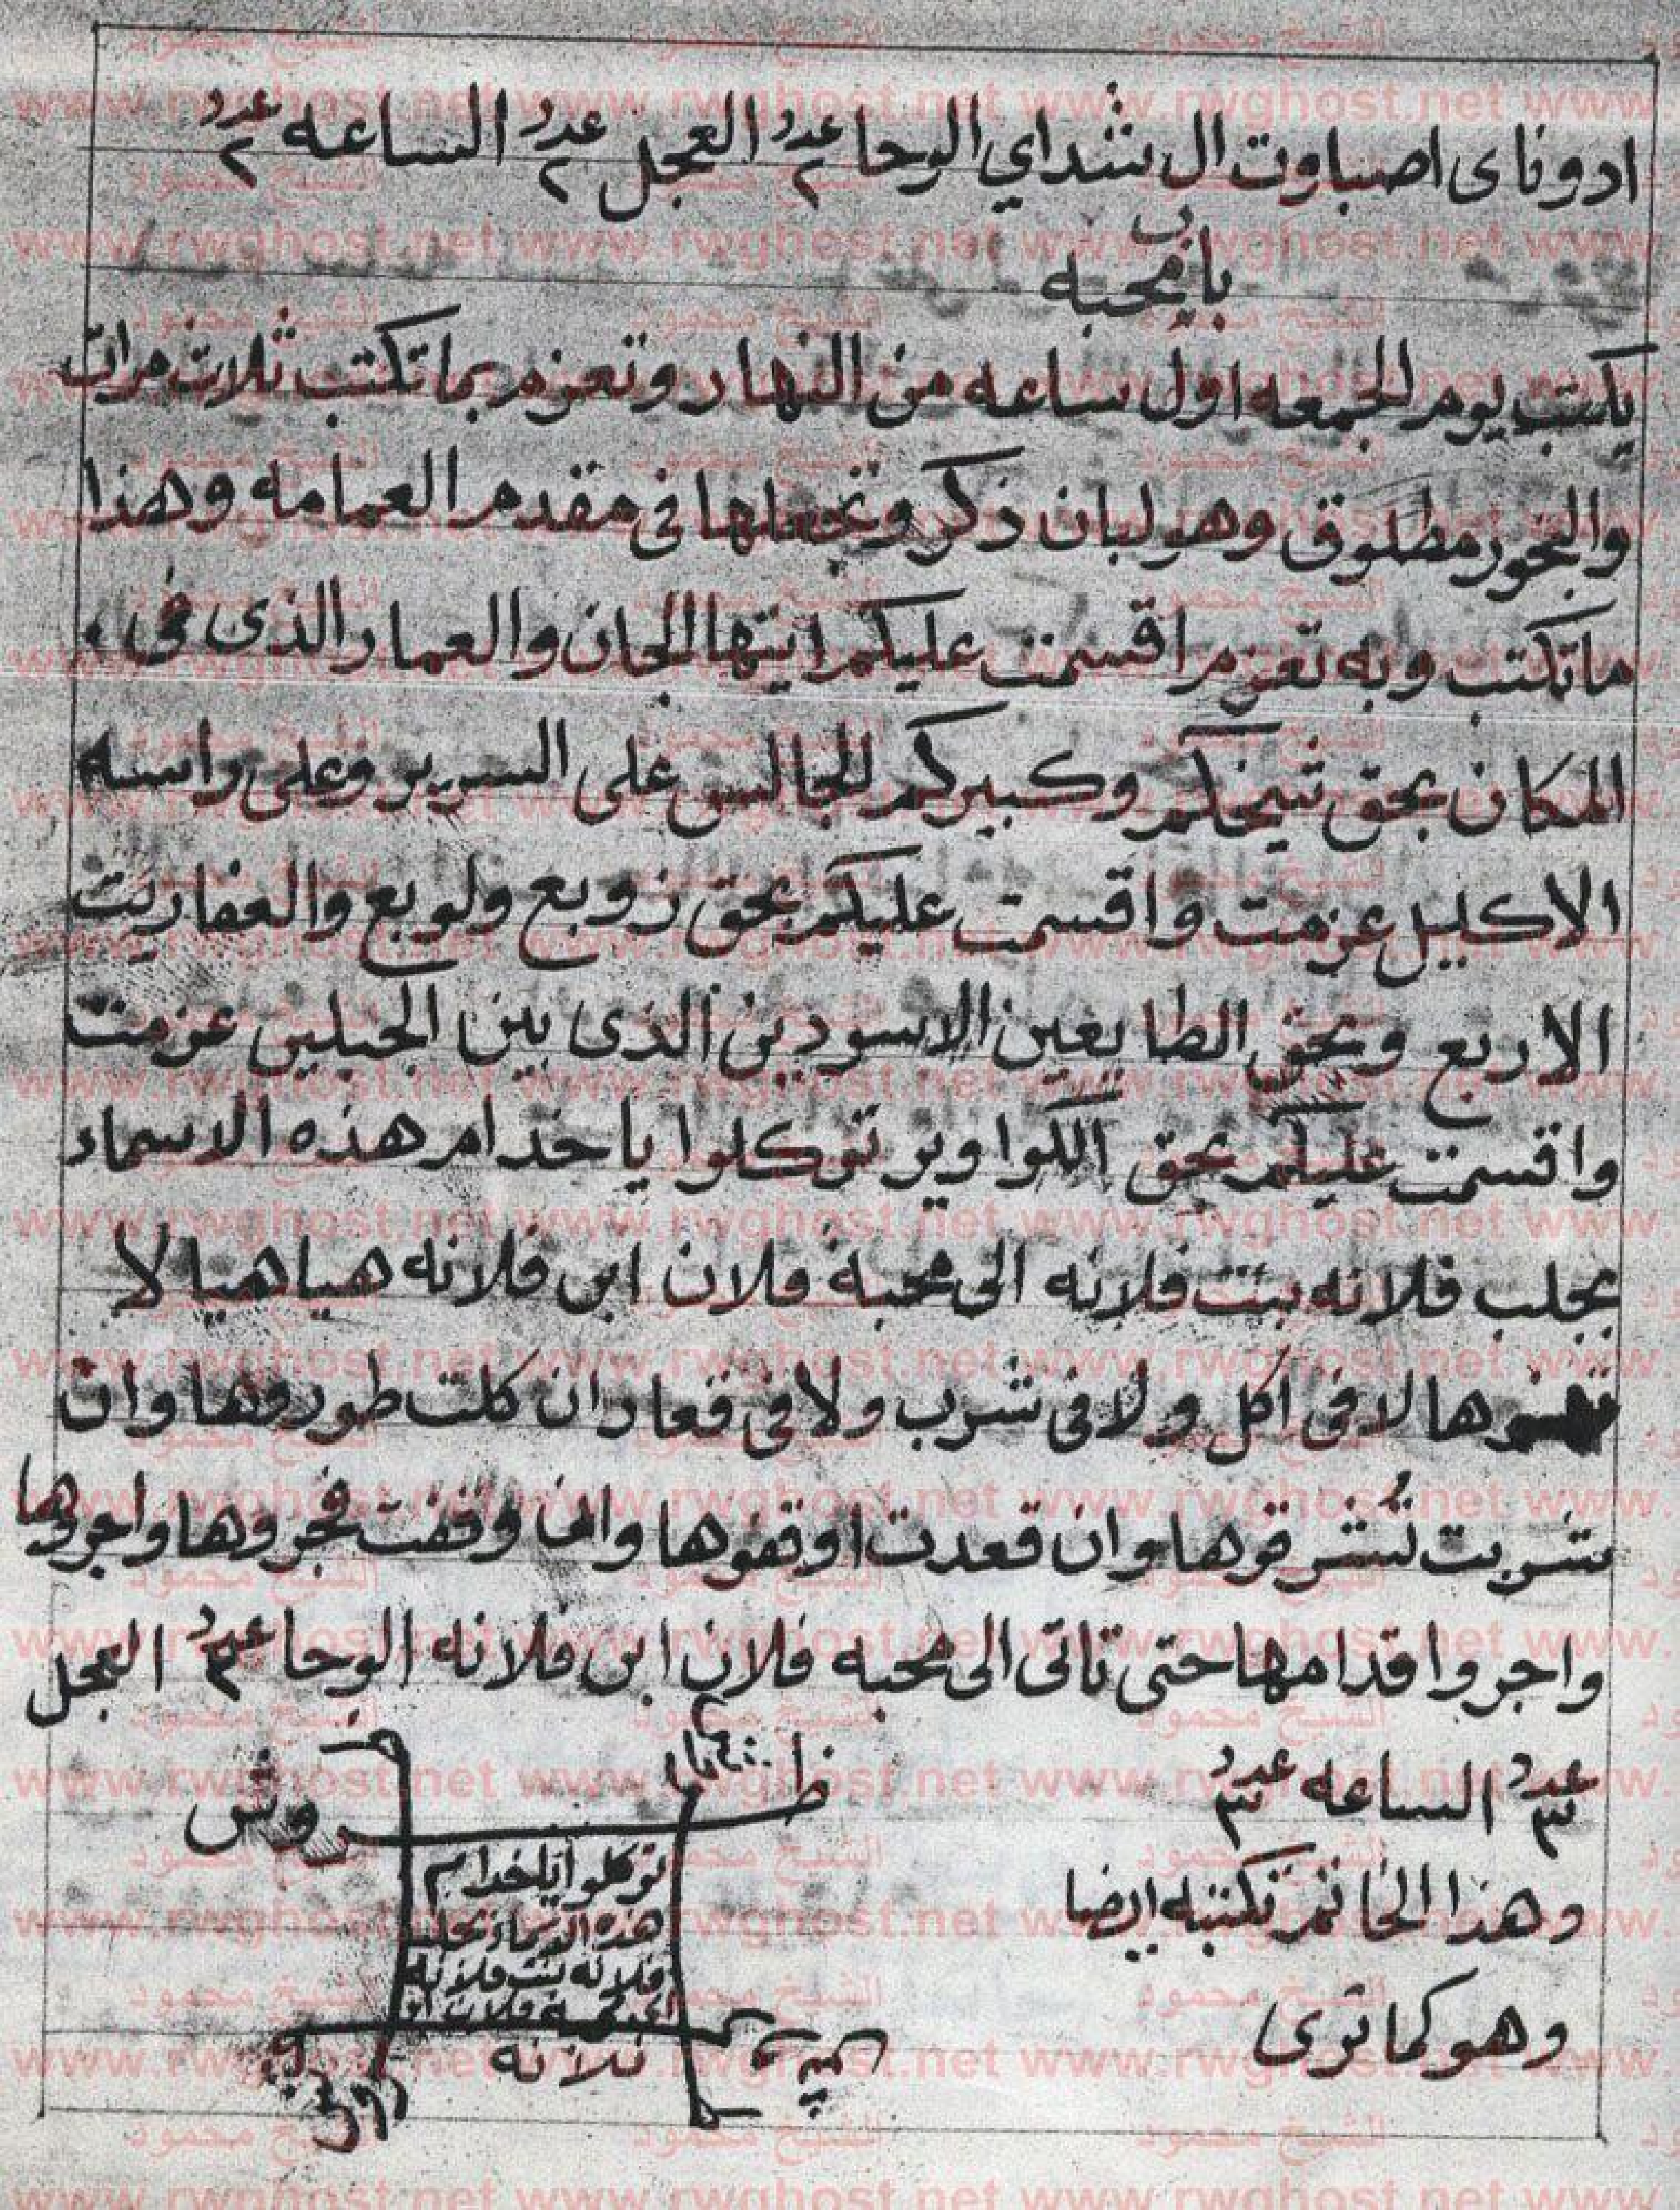 ادوناى اصباوت ال شداي الوحا عدد ٢ العجل عدد ٢ الساعه عدد ٢
باب محبه
يكتب يوم الجمعه اول ساعه من النهار وتعزم بما تكتب ثلاث مرات
والبخور مطلوق وهو لبان ذكر وتجعلها فى مقدم العمامه وهذا
ما تكتب وبه تعزم اقسمت عليكم ايتها الجان والعمار الذى فى
المكان بحق شيخكم وكبيركم الجالس على السرير وعلى راسه
الاكليل عزمت واقسمت عليكم بحق زوبع ولوبع والعفاريت
الاربع وبحق الطايعين الاسودين الذى بين الجبلين عزمت
واقسمت عليكم بحق الكواوير توكلوا يا خدام هذه الاسماء
بجلب فلانه بنت فلانه الى محبة فلان ابن فلانه هيا هيا لا
لا فى اكل ولا فى شرب ولا فى قعاد ان كلت طوروها وان
شربت شرقوها وان قعدت اوقفوها وان وقفت فجروها واجروها
واجروا اقدامها حتى تاتى الى محبه فلان ابن فلانه الوحا عدد ٣ العجل
عدد ٣ الساعه عدد ٣
وهذا الخاتم تكتبه ايضا
وهو كما ترى
روش
توكلوا يا خدام
هذه الاسماء بجلب
فلانه بنت فلانه
الى محبه فلان ابن
فلانه
www.rwghost.net
الشيخ محمود